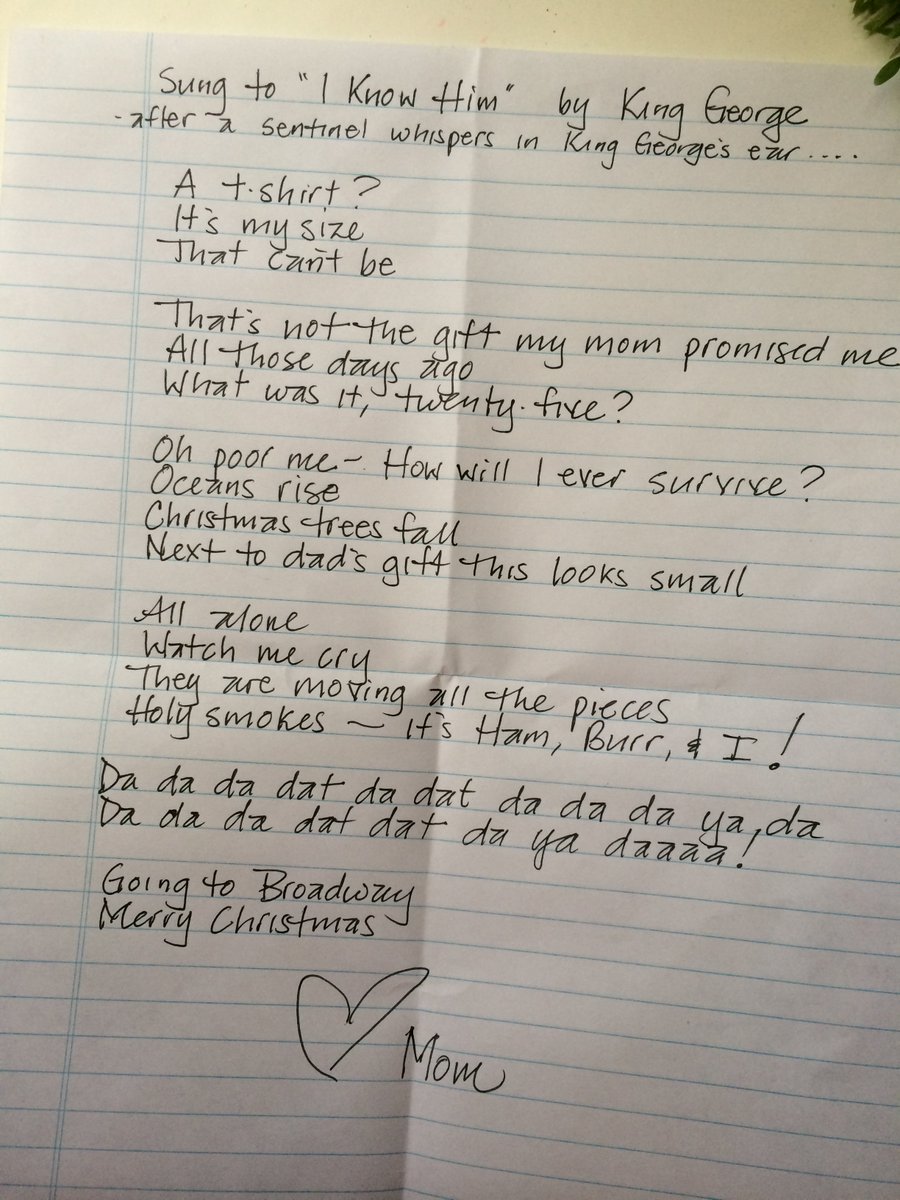 Sung to "I Know Him" by King George
-after a sentinel whispers in King George's ear....
A t-shirt?
It's my size
That can't be
That's not the gift my mom promised me
All those days ago
What was it, twenty-five?
Oh poor me - How will I ever survive?
Oceans rise
Christmas trees fall
Next to dad's gift this looks small
All alone
Watch me cry
They are moving all the pieces
Holy smokes - it's Ham, Burr, & I!
Da da da dat da dat da da da ya, da
Da da da dat dat da ya daaaa!
Going to Broadway
Merry Christmas
Mom